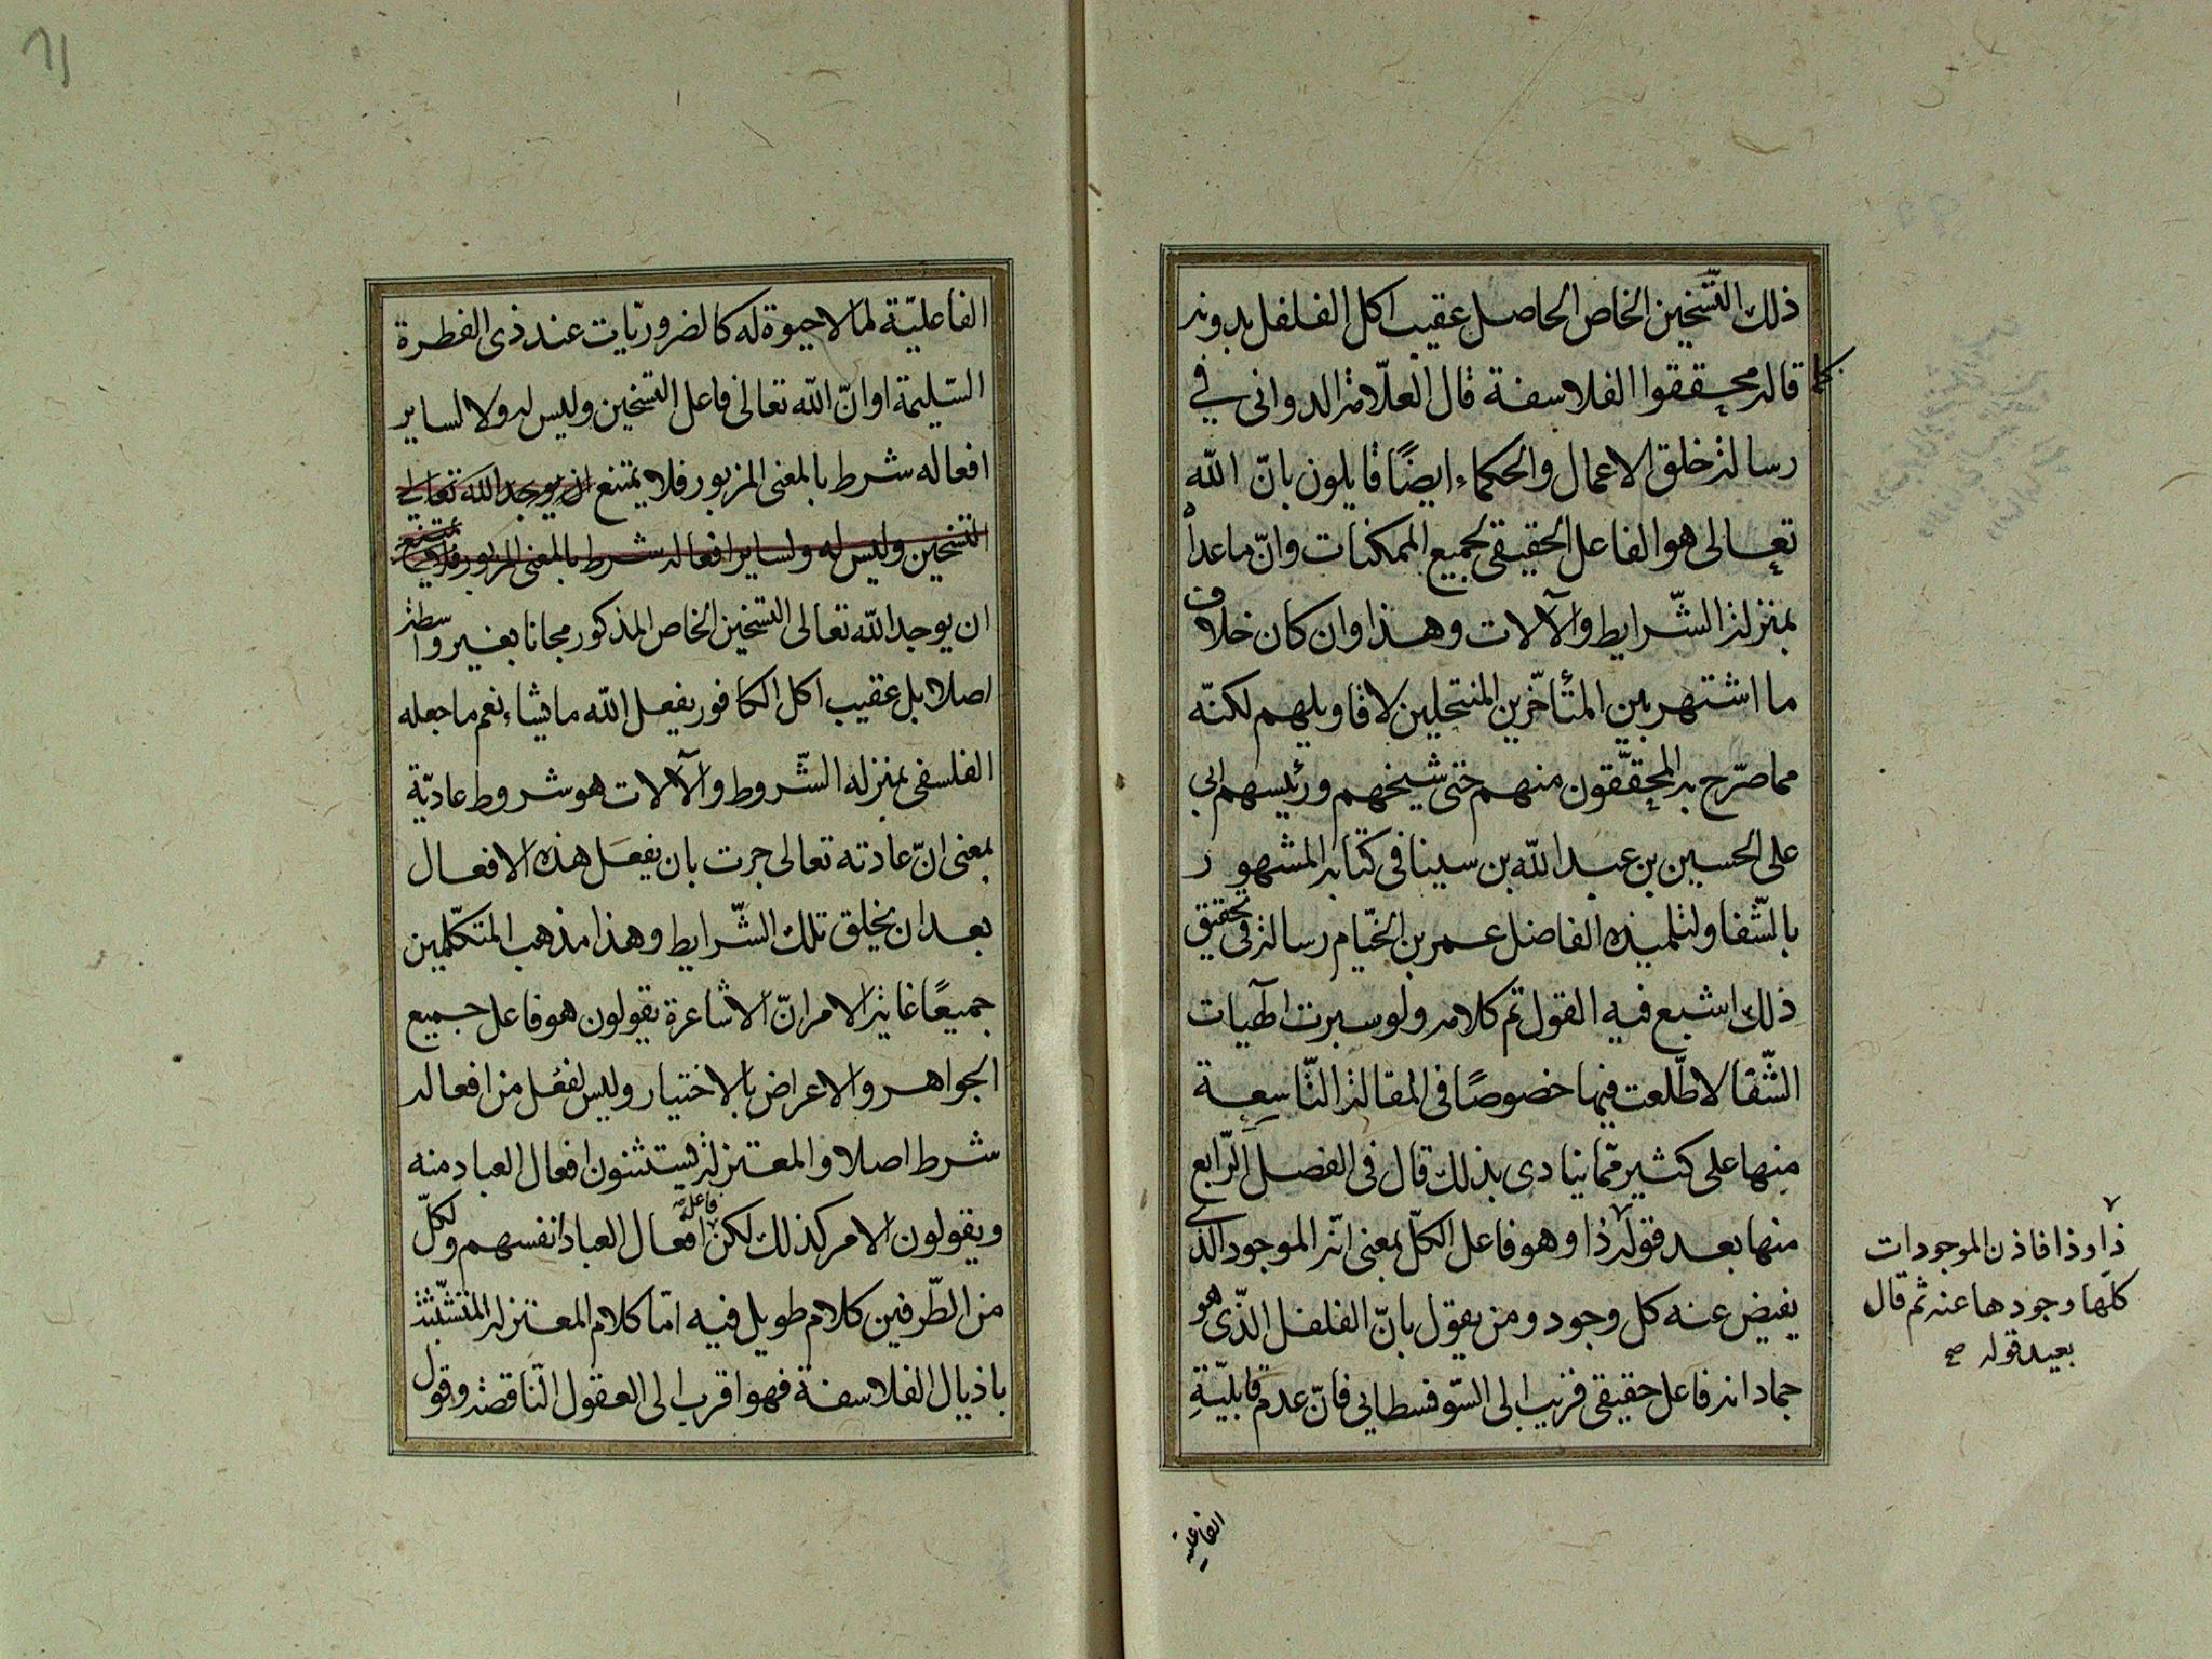 ذلك التّسخين الخاص الحاصل عقيب اكل الفلفل بدونه
كما قاله محققوا الفلاسفة قال العلّامة الدوانى في
رسالة خلق الاعمال والحكماء ايضًا قايلون بانّ الله
تعالى هو الفاعل الحقيقى لجميع الممكنات وانّ ما عداه
بمنزلة الشّرايط والآلات وهذا وان كان خلاف
ما اشتهر بين المتأخّرين المنتحلين لاقاويلهم لكنّه
مما صرّح به المحقّقون منهم حتى شيخهم ورئيسهم ابى
على الحسين بن عبد الله بن سينا فى كتابه المشهور
بالشّفا ولتلميذه الفاضل عمر بن الخيّام رسالة فى تحقيق
ذلك اشبع فيه القول تم كلامه ولو سبرت الهيات
الشّفا لاطّلعت فيها خصوصًا فى المقالة التّاسعة
منها على كثير ممّا ينادى بذلك قال فى الفصل الرّابع
منها بعد قوله ذا وهو فاعل الكلّ بمعنى انّه الموجود الذى
يفيض عنه كل وجود ومن يقول بانّ الفلفل الذّى هو
جماد انه فاعل حقيقى قريب الى السّوفسطايى فانّ عدم قابليّةِ
ذا وذا فاذن الموجودات
كلّها وجودها عنه ثم قال
بعيد قوله صح
الفاعليّة
٦١
الفاعليّة لما لا حيوة له كالضروريّات عند ذى الفطرة
السّليمة اوانّ الله تعالى فاعل التسخين وليس له ولا لساير
افعاله شرط بالمعنى المزبور فلا يمتنع ان يوجد الله تعالى
التسخين وليس له ولساير افعاله شرط بالمعنى المزبور فلا يمتنع
ان يوجد الله تعالى التسخين الخاص المذكور مجانا بغير واسطة
اصلا بل عقيب اكل الكافور يفعل الله ما يشاء نعم ما جعله
الفلسفى بمنزله الشّروط والآلات هو شروط عاديّة
بمعنى انّ عادته تعالى جرت بان يفعَل هذه الافعال
بعد ان يخلق تلك الشّرايط وهذا مذهب المتكلّمين
جميعًا غاية الامر انّ الاشاعرة يقولون هو فاعل جميع
الجواهر والاعراض بالاختيار وليس لفعل من افعاله
شرط اصلا والمعتزلة يستثنون افعال العباد منه
ويقولون الامر كذلك لكن فاعل افعال العباد انفسهم ولكلّ
من الطّرفين كلام طويل فيه امّا كلام المعتزلة المتشبّثة
باذيال الفلاسفة فهو اقرب الى العقول النّاقصة وقول